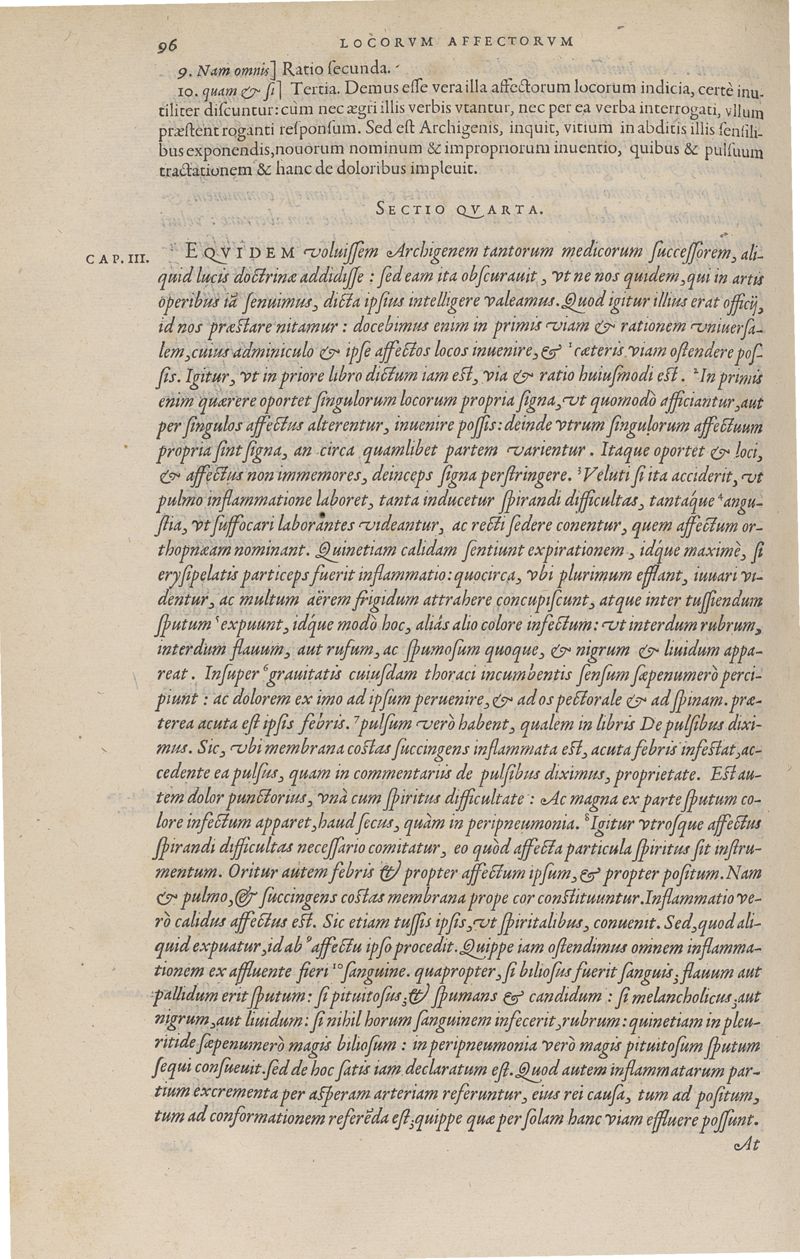 96 LOCORVM AFFECTORVM
9. Nam omnis] Ratio ſecunda.
10. quam & ſi] Tertia. Demus eſſe vera illa affectorum locorum indicia, certè inu-
tiliter diſcuntur: cùm nec ægri illis verbis vtantur, nec per ea verba interrogati, vllum
præſtent roganti reſponſum. Sed eſt Archigenis, inquit, vitium in abditis illis ſenſili-
bus exponendis, nouorum nominum & impropriorum inuentio, quibus & pulſuum
tractationem & hanc de doloribus impleuit.
SECTIO QVARTA.
CAP. III. EQVIDEM voluiſſem Archigenem tantorum medicorum ſucceſſorem, ali-
quid lucis doctrinæ addidiſſe : ſed eam ita obſcurauit, vt ne nos quidem, qui in artis
operibus iã ſenuimus, dicta ipſius intelligere valeamus. Quod igitur illius erat officij,
id nos præſtare nitamur : docebimus enim in primis viam & rationem vniuerſa-
lem, cuius adminiculo & ipſe affectos locos inuenire, & ¹cæteris viam oſtendere poſ-
ſis. Igitur, vt in priore libro dictum iam eſt, via & ratio huiuſmodi eſt. ²In primis
enim quærere oportet ſingulorum locorum propria ſigna, vt quomodò afficiantur, aut
per ſingulos affectus alterentur, inuenire poſſis: deinde vtrum ſingulorum affectuum
propria ſint ſigna, an circa quamlibet partem varientur. Itaque oportet & loci,
& affectus non immemores, deinceps ſigna perſtringere. ³Veluti ſi ita acciderit, vt
pulmo inflammatione laboret, tanta inducetur ſpirandi difficultas, tantáque ⁴angu-
ſtia, vt ſuffocari laborantes videantur, ac recti ſedere conentur, quem affectum or-
thopnæam nominant. Quinetiam calidam ſentiunt expirationem, idque maximè, ſi
eryſipelatis particeps fuerit inflammatio: quocirca, vbi plurimum efflant, iuuari vi-
dentur, ac multum aërem frigidum attrahere concupiſcunt, atque inter tuſſiendum
ſputum ⁵expuunt, idque modò hoc, aliás alio colore infectum: vt interdum rubrum,
interdum flauum, aut rufum, ac ſpumoſum quoque, & nigrum & liuidum appa-
reat. Inſuper ⁶grauitatis cuiuſdam thoraci incumbentis ſenſum ſæpenumerò perci-
piunt : ac dolorem ex imo ad ipſum peruenire, & ad os pectorale & ad ſpinam. præ-
terea acuta eſt ipſis febris. ⁷pulſum verò habent, qualem in libris De pulſibus dixi-
mus. Sic, vbi membrana coſtas ſuccingens inflammata eſt, acuta febris infeſtat, ac-
cedente ea pulſus, quam in commentariis de pulſibus diximus, proprietate. Eſt au-
tem dolor punctorius, vnà cum ſpiritus difficultate : Ac magna ex parte ſputum co-
lore infectum apparet, haud ſecus, quàm in peripneumonia. ⁸Igitur vtroſque affectus
ſpirandi difficultas neceſſario comitatur, eo quòd affecta particula ſpiritus ſit inſtru-
mentum. Oritur autem febris & propter affectum ipſum, & propter poſitum. Nam
& pulmo, & ſuccingens coſtas membrana prope cor conſtituuntur. Inflammatio ve-
rò calidus affectus eſt. Sic etiam tuſſis ipſis, vt ſpiritalibus, conuenit. Sed, quod ali-
quid expuatur, id ab ⁹affectu ipſo procedit. Quippe iam oſtendimus omnem inflamma-
tionem ex affluente fieri ¹⁰ſanguine. quapropter, ſi bilioſus fuerit ſanguis, flauum aut
pallidum erit ſputum: ſi pituitoſus, & ſpumans & candidum : ſi melancholicus, aut
nigrum, aut liuidum: ſi nihil horum ſanguinem infecerit, rubrum: quinetiam in pleu-
ritide ſæpenumerò magis bilioſum : in peripneumonia verò magis pituitoſum ſputum
ſequi conſueuit. ſed de hoc ſatis iam declaratum eſt. Quod autem inflammatarum par-
tium excrementa per aſperam arteriam referuntur, eius rei cauſa, tum ad poſitum,
tum ad conformationem referẽda eſt, quippe quæ per ſolam hanc viam effluere poſſunt.
At